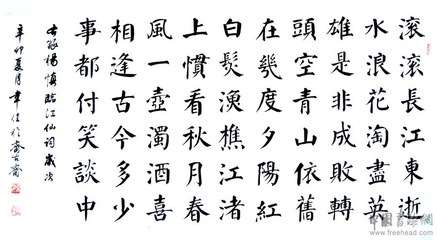 滾滾長江東逝
水浪花淘盡英
雄是非成敗轉
頭空青山依舊
在幾度夕陽紅
白髮漁樵江渚
上慣看秋月春
風一壺濁酒喜
相逢古今多少
事都付笑談中
楊慎臨江仙詞歲次
辛卯夏月
www.freehead.com